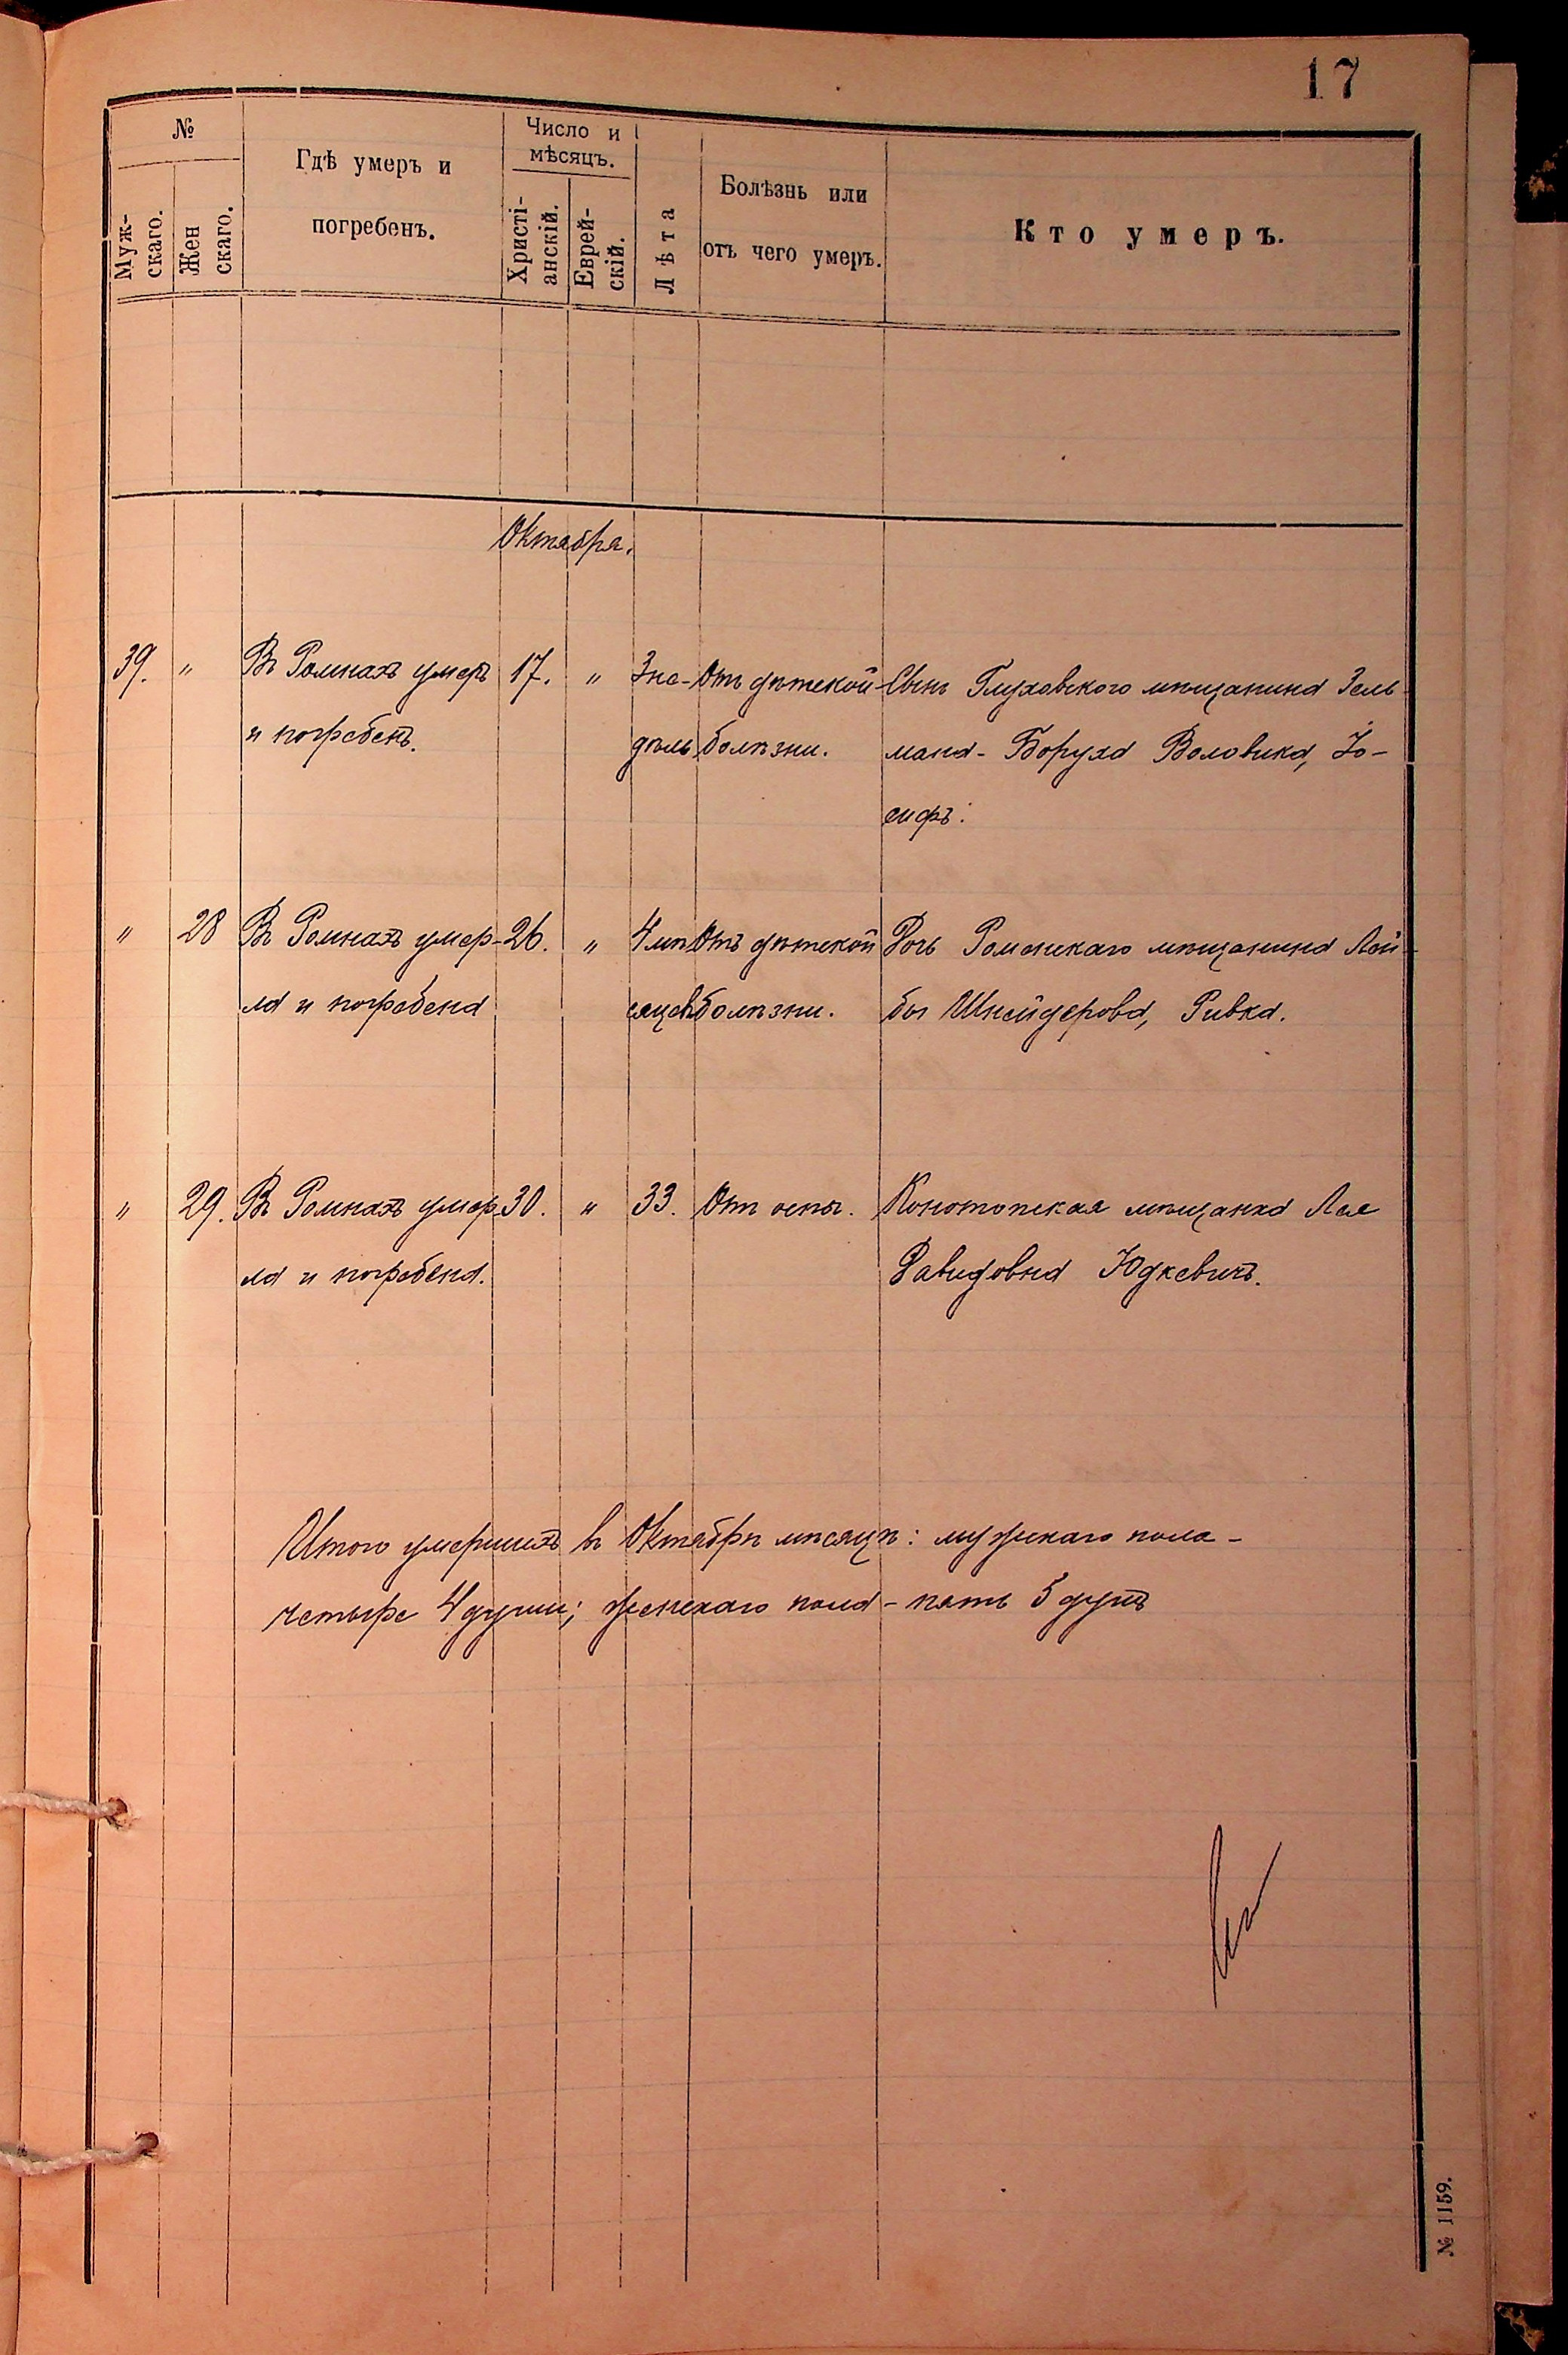 17
№
Муж-
скаго.
Жен
скаго.
Гдѣ умеръ и
погребенъ.
Число и
мѣсяцъ.
Христі-
анскій.
Еврей-
скій.
Лѣта
Болѣзнь или
отъ чего умеръ.
Кто умеръ.
Октября.
39. " Въ Ромнахъ умеръ 17. " 3 не- Отъ дѣтской Сынъ Глуховского мѣщанина Зель-
и погребенъ. дѣль болѣзни. мана-Боруха Воловика, Іо-
сифъ.
" 28 Въ Ромнахъ умер- 26. " 4 мѣ Отъ дѣтской Дочь Роменскаго мѣщанина Лей-
ла и погребена сяцевъ болѣзни. бы Шнейдерова, Ривка.
" 29. Въ Ромнахъ умер- 30. " 33. Отъ оспы. Конотопская мѣщанка Лея
ла и погребена. Давидовна Юдкевичъ.
Итого умершихъ въ Октябрѣ мѣсяцѣ: мужскаго пола-
четыре 4 души; женскаго пола - пять 5 душъ
№ 1159.